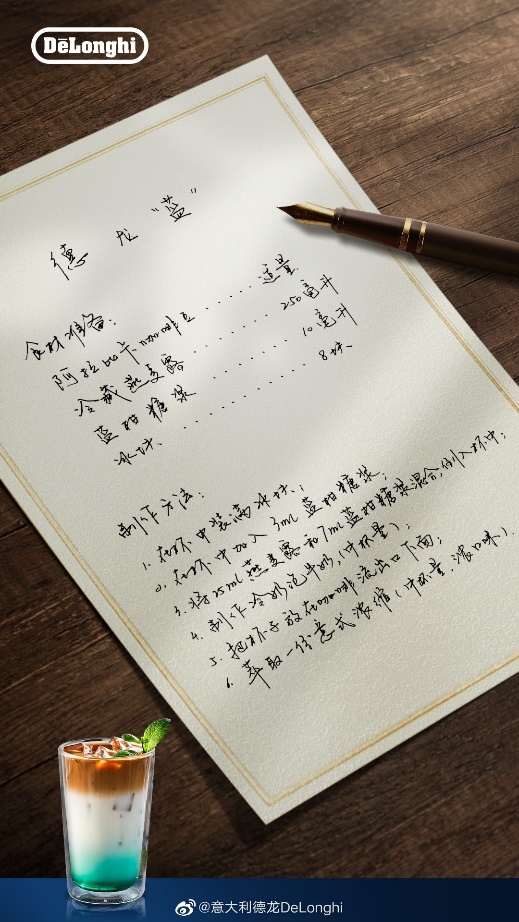 DeLonghi
德龙“蓝”
食材准备:
阿拉比卡咖啡豆......适量
冷藏燕麦露.......250毫升
蓝柑糖浆........10毫升
冰块.........8块
制作方法:
1. 在杯中装满冰块;
2. 在杯中加入3mL蓝柑糖浆;
3. 将25mL燕麦露和7mL蓝柑糖浆混合,倒入杯中;
4. 制作冷奶泡牛奶(中杯量);
5. 把杯子放在咖啡流出口下面;
6. 萃取一份意式浓缩(中杯量,浓口味).
@意大利德龙DeLonghi